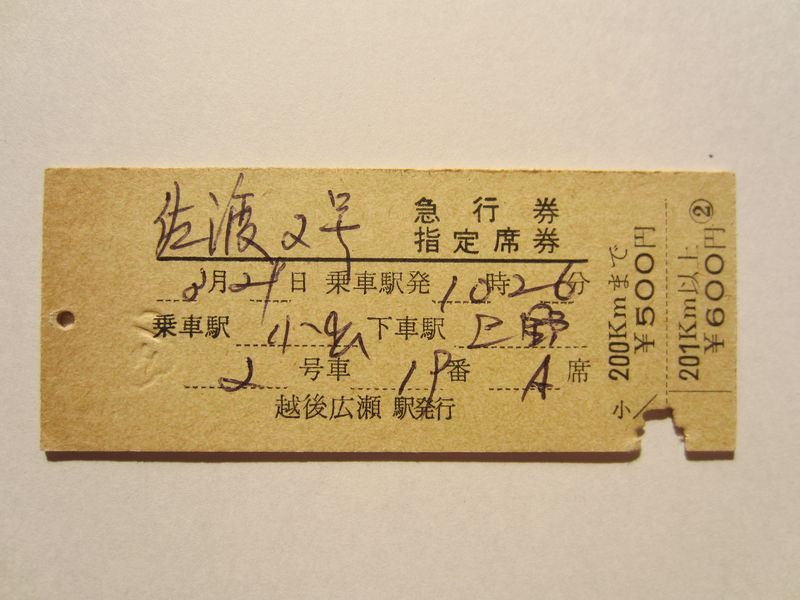 佐渡2号 急行券
指定席券
月2 日 乗車駅発 10時26分
乗車駅 小出 下車駅 上野
2号車 19番 A席
越後広瀬 駅発行
200Kmまで
¥500円
201Km以上
¥600円②
小